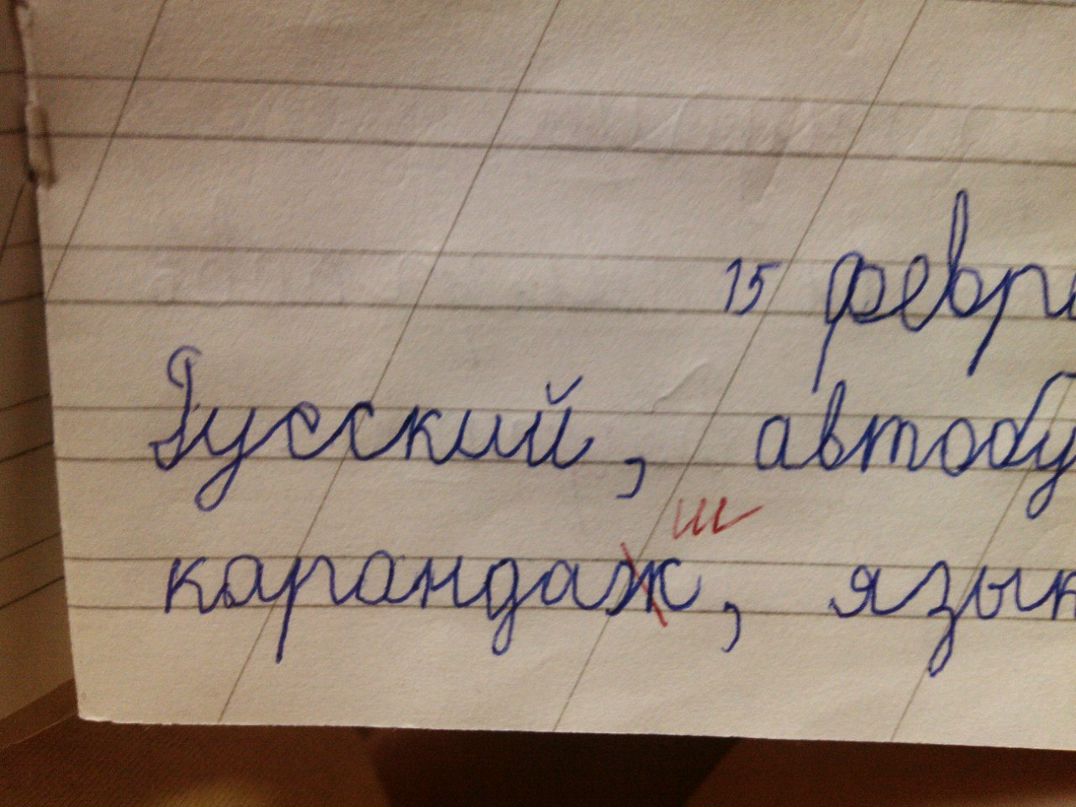 15 февра
Русский, автобу
ш
карандаж, язык